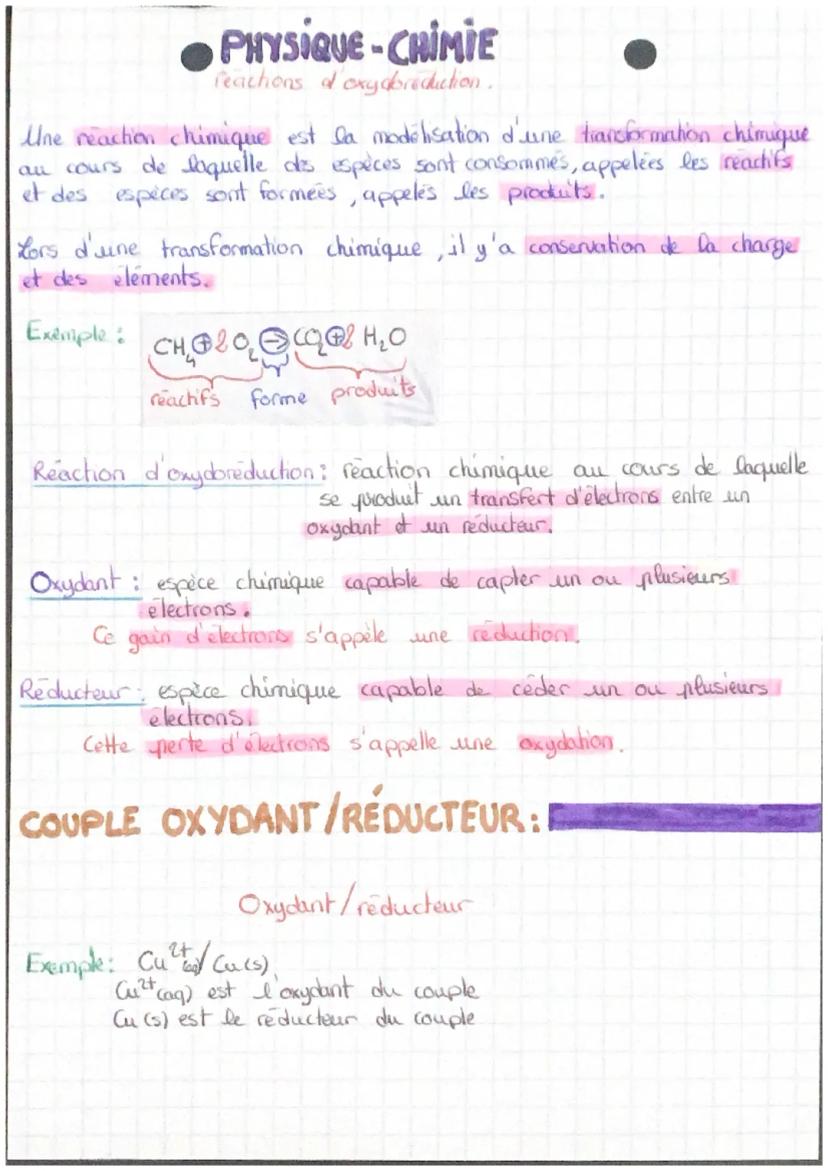 PHYSIQUE - CHIMIE
réactions d'oxydoréduction.
Une réaction chimique est la modélisation d'une transformation chimique
au cours de laquelle des espèces sont consommés, appelées les réactifs
et des espèces sont formées, appelés les produits.
Lors d'une transformation chimique, il y'a conservation de la charge
et des éléments.
Exemple : CH₄ ⊕ 2 O₂ → CO₂ ⊕ 2 H₂O
réactifs forme produits
Réaction d'oxydoréduction : réaction chimique au cours de laquelle
se produit un transfert d'électrons entre un
oxydant et un réducteur.
Oxydant : espèce chimique capable de capter un ou plusieurs
électrons.
Ce gain d'électrons s'appèle une réduction.
Réducteur : espèce chimique capable de céder un ou plusieurs
électrons.
Cette perte d'électrons s'appelle une oxydation.
COUPLE OXYDANT/RÉDUCTEUR :
Oxydant / réducteur
Exemple : Cu²⁺(aq) / Cu(s)
Cu²⁺(aq) est l'oxydant du couple
Cu (s) est le réducteur du couple